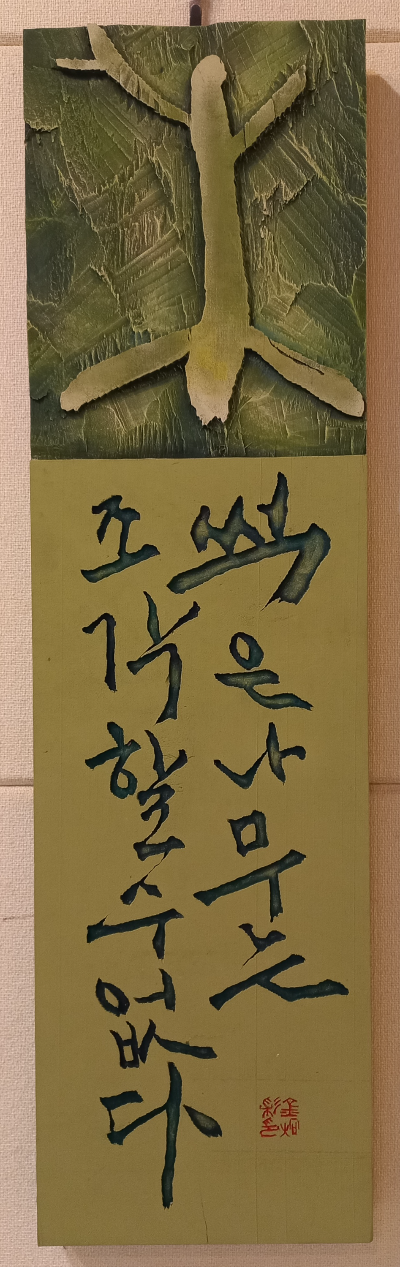 썩은나무는
조각할수없다